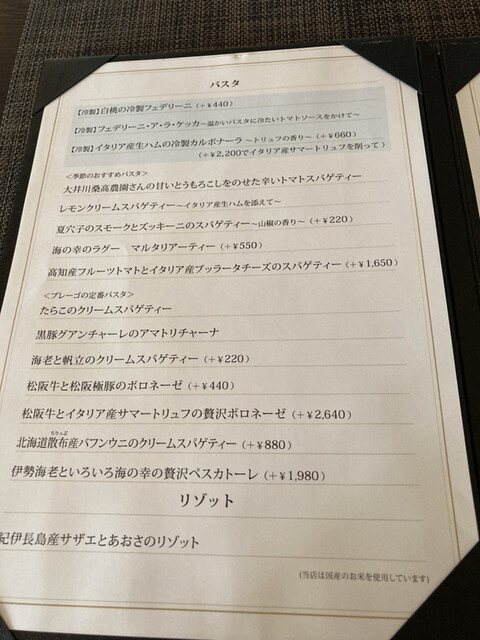 パスタ
【冷製】白桃の冷製フェデリーニ（+￥440）
【冷製】フェデリーニ・ア・ラ・ケッカ～温かいパスタに冷たいトマトソースをかけて～
【冷製】イタリア産生ハムの冷製カルボナーラ ～トリュフの香り～（+￥660）
（+￥2,200でイタリア産サマートリュフを削って）
＜季節のおすすめパスタ＞
大井川桑高農園さんの甘いとうもろこしをのせた辛いトマトスパゲティー
レモンクリームスパゲティー～イタリア産生ハムを添えて～
夏穴子のスモークとズッキーニのスパゲティー～山椒の香り～（+￥220）
海の幸のラグー　マルタリアーティー（+￥550）
高知産フルーツトマトとイタリア産ブッラータチーズのスパゲティー（+￥1,650）
＜プレーゴの定番パスタ＞
たらこのクリームスパゲティー
黒豚グアンチャーレのアマトリチャーナ
海老と帆立のクリームスパゲティー（+￥220）
松阪牛と松阪極豚のボロネーゼ（+￥440）
松阪牛とイタリア産サマートリュフの贅沢ボロネーゼ（+￥2,640）
ちりっぷ
北海道散布産バフンウニのクリームスパゲティー（+￥880）
伊勢海老といろいろ海の幸の贅沢ペスカトーレ（+￥1,980）
リゾット
紀伊長島産サザエとあおさのリゾット
(当店は国産のお米を使用しています)